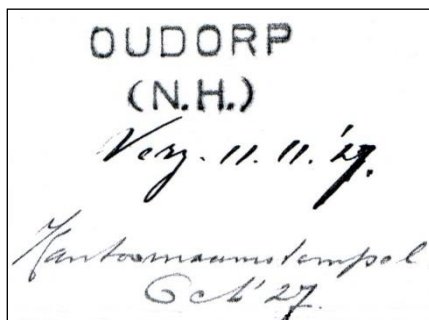 OUDORP
(N.H.)
Verz. 11.11.'27.
Kantoornaamstempel
Oct '27.